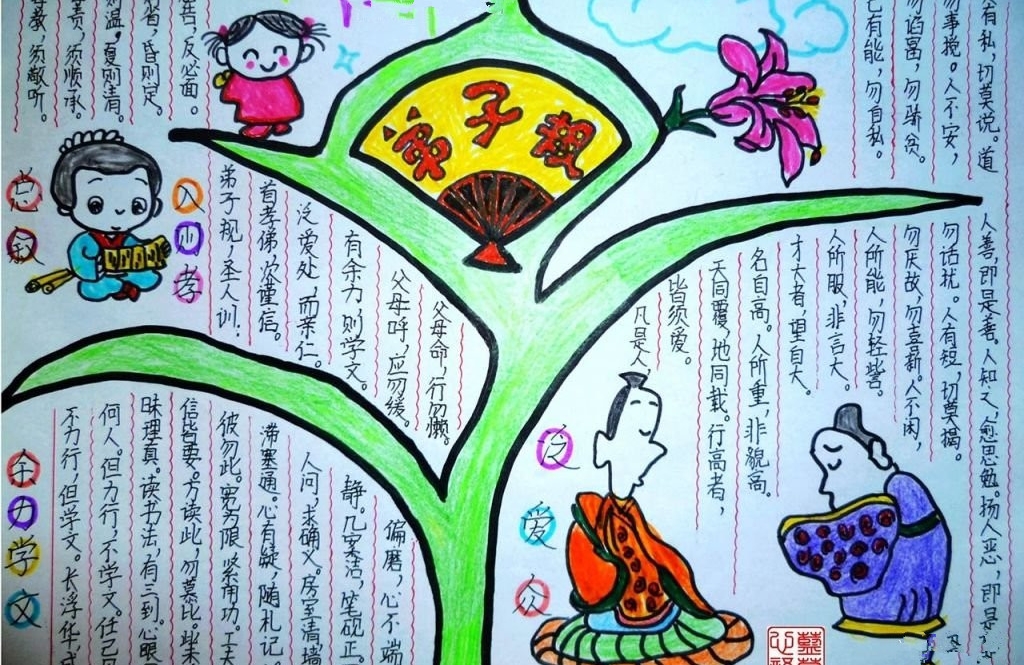 弟子规
总叙
弟子规,圣人训,
首孝弟,次谨信。
泛爱处,而亲仁。
有余力,则学文。
入孝
父母呼,应勿缓。
父母命,行勿懒。
教,须敬听。
责,须顺承。
则温,夏则清。
省,昏则定。
告,反必面。
泛爱众
凡是人
皆须爱。
天同覆,地同载。行高者,
名自高。人所重,非貌高。
才大者,望自大。
人所服,非言大。
人所能,勿轻訾。
勿谄富,勿骄贫。
己有能,勿自私。
勿厌故,勿喜新。人不闲,
勿事搅。人不安,
勿话扰。人有短,切莫揭。
有私,切莫说。道
人善,即是善。人知之,愈思勉。扬人恶,即是
余力学文
不力行,但学文。长浮华,
何人。但力行,不学文。任己
昧理真。读书法,有三到。心眼
信皆要。方读此,勿慕彼。此未
彼勿此。宽为限,紧用功。工夫
滞塞通。心有疑,随札记。
人问,求确义。房室清,墙
静。几案洁,笔砚正。
偏磨,心不端